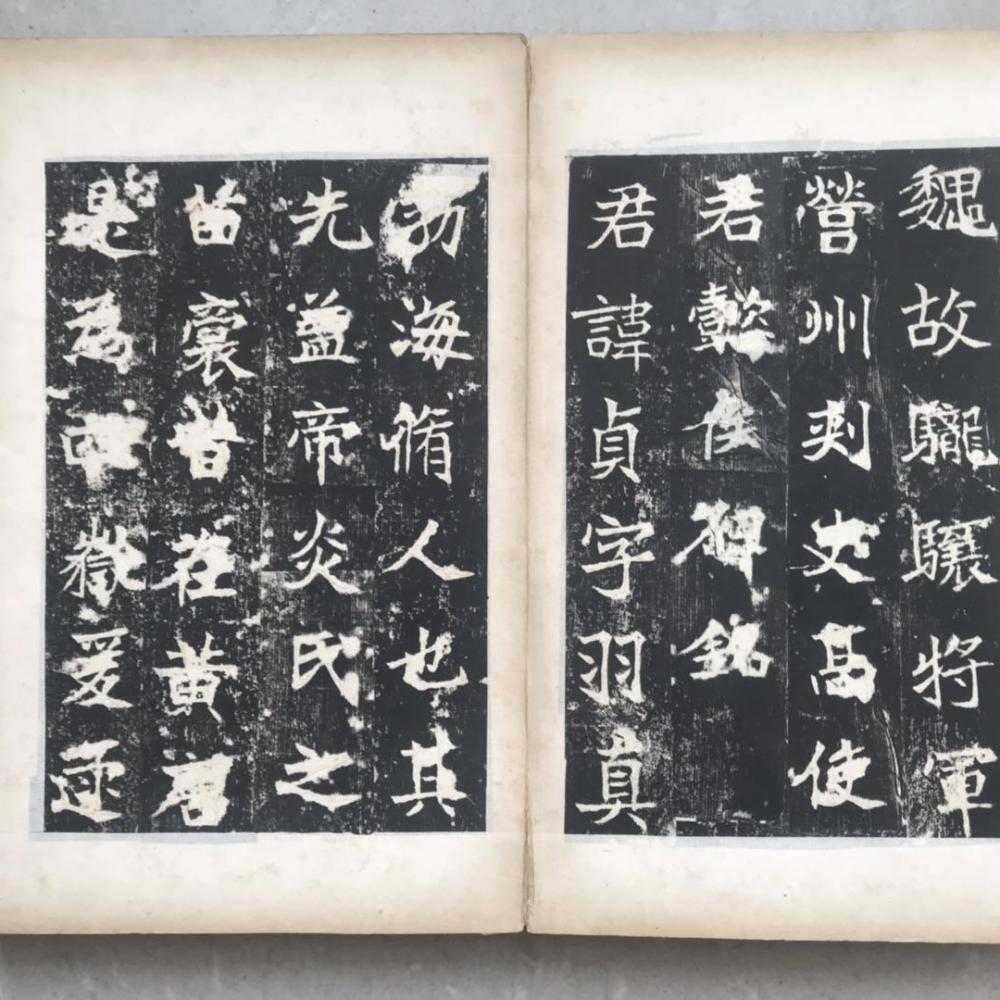 魏故驣驤將軍
營州刾史髙使
君懿侯碑銘
君諱貞字羽真
勃海脩人也其
先盖帝炎氏之
苗裔昔在黄君
是為四嶽爰逐